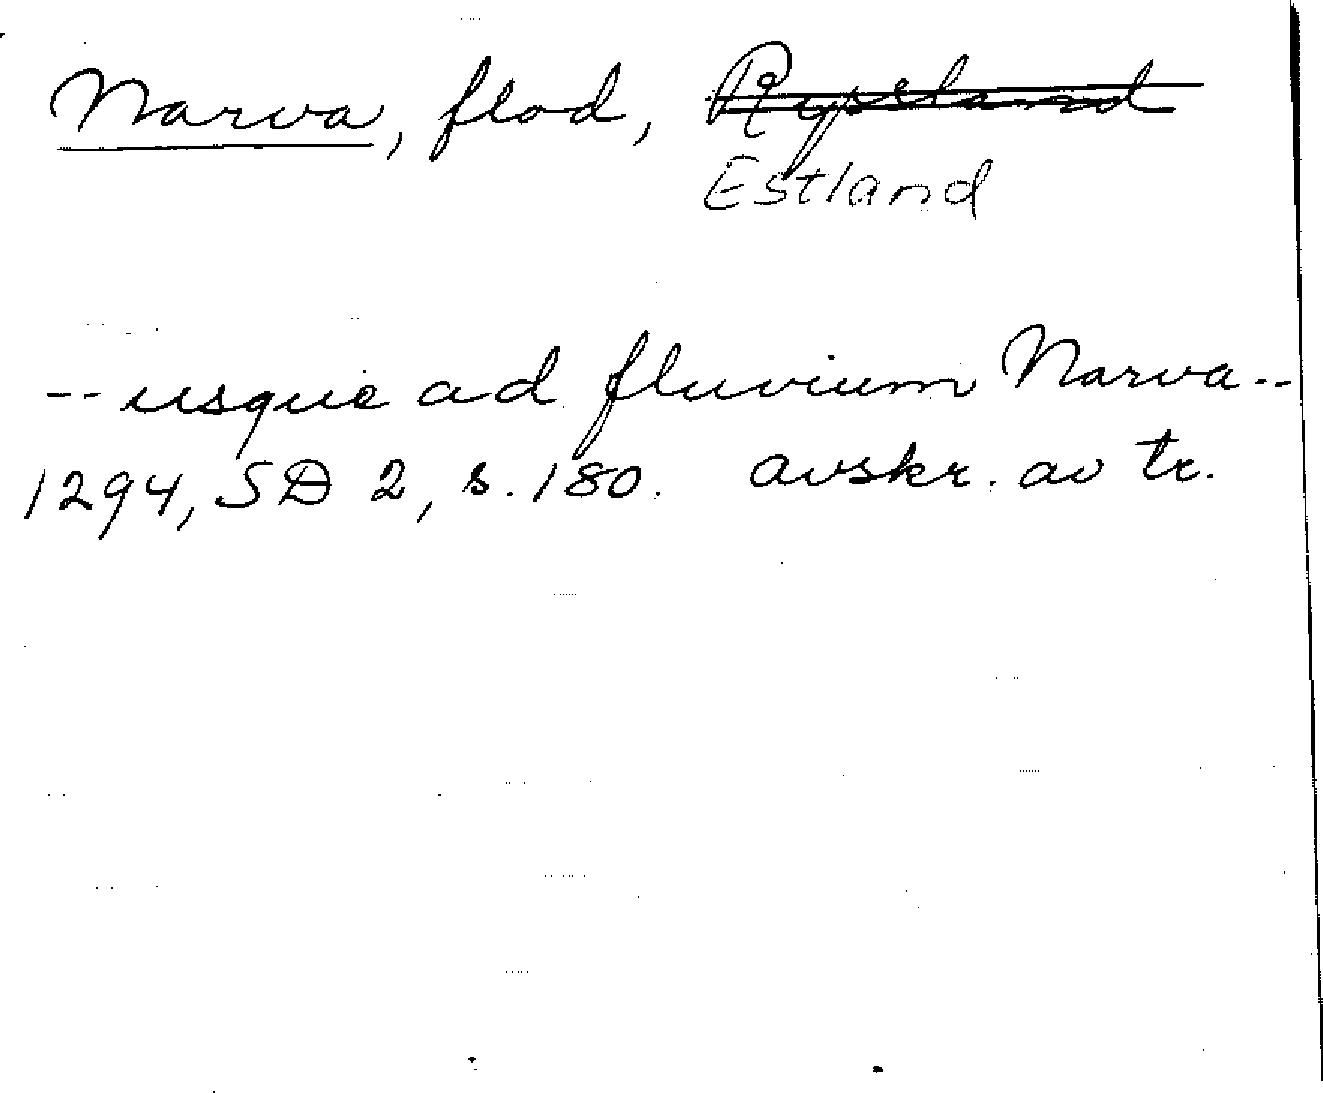 Narva, flod, Ryssland
Estland
-- usque ad fluvium Narva --
1294, SD 2, s. 180. avskr. av tr.